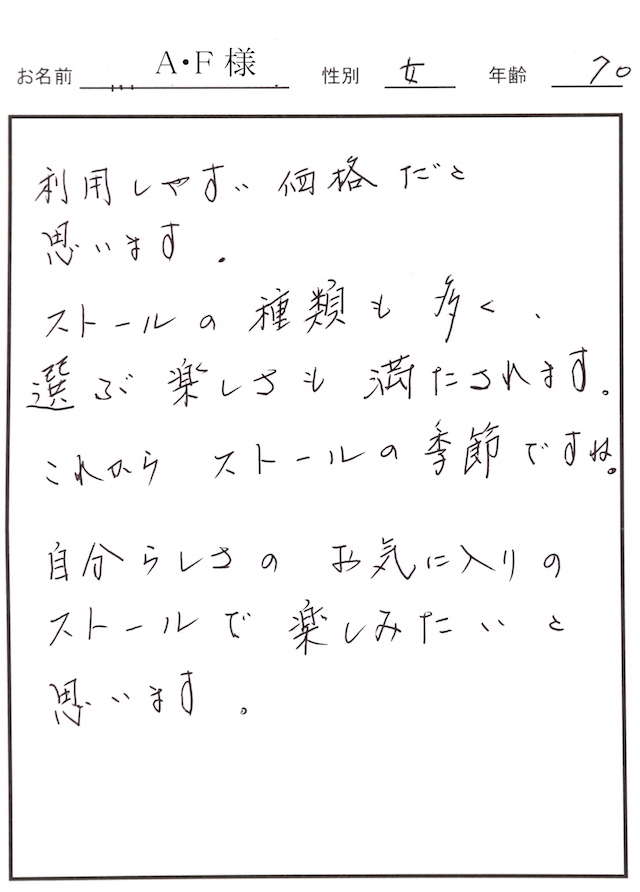 お名前 A・F様 性別 女 年齢 70
利用しやすい価格だと
思います。
ストールの種類も多く、
選ぶ楽しさも満たされます。
これから ストールの季節ですね。
自分らしさの お気に入りの
ストールで楽しみたいと
思います。